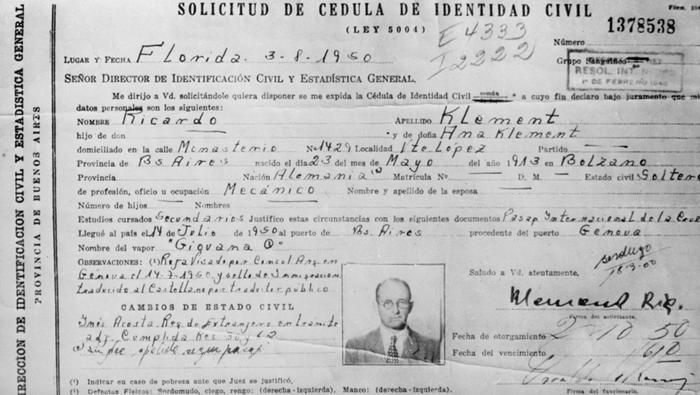 SOLICITUD DE CEDULA DE IDENTIDAD CIVIL
(LEY 5004)
E4333
I2222
Número
1378538
LUGAR Y FECHA Florida 3-8-1950
Grupo
RESOL. INT.
SEÑOR DIRECTOR DE IDENTIFICACIÓN CIVIL Y ESTADÍSTICA GENERAL.
Me dirijo a Vd. solicitándole quiera disponer se me expida la Cédula de Identidad Civil a cuyo fin declaro bajo juramento que mis
datos personales son los siguientes:
NOMBRE Ricardo APELLIDO Klement
hijo de don y de doña Ana Klement
domiciliado en la calle Monasterio Nº 1429 Localidad Vte. López Partido
Provincia de Bs. Aires nacido el día 23 del mes de Mayo del año 1913 en Bolzano
Provincia Nación Alemania Matrícula Nº D. M. Estado civil Soltero
de profesión, oficio u ocupación Mecánico Nombre y apellido de la esposa
Número de hijos Nombres
Estudios cursados Secundarios Justifico estas circunstancias con los siguientes documentos Pasap. Internacional de la Cruz
Llegué al país el 14 de Julio de 1950 al puerto de Bs. Aires procedente del puerto Genova
Nombre del vapor "Giovana C"
OBSERVACIONES: (1) Roja Visado por Consul Arg. en
Genova el 14-7-1950, y sello de Inmigracion,
traducido al Castellano por traductor publico
Saludo a Vd. atentamente,
CAMBIOS DE ESTADO CIVIL
Firma del solicitante.
Fecha de otorgamiento 2 10 50
Fecha del vencimiento
Firma del funcionario.
(1) Indicar en caso de pobreza ante que Juez se justificó,
(2) Defectos Físicos: Sordomudo, ciego, rengo: (derecha-izquierda). Manco: (derecha-izquierda).
DIRECCIÓN DE IDENTIFICACIÓN CIVIL Y ESTADISTICA GENERAL
PROVINCIA DE BUENOS AIRES